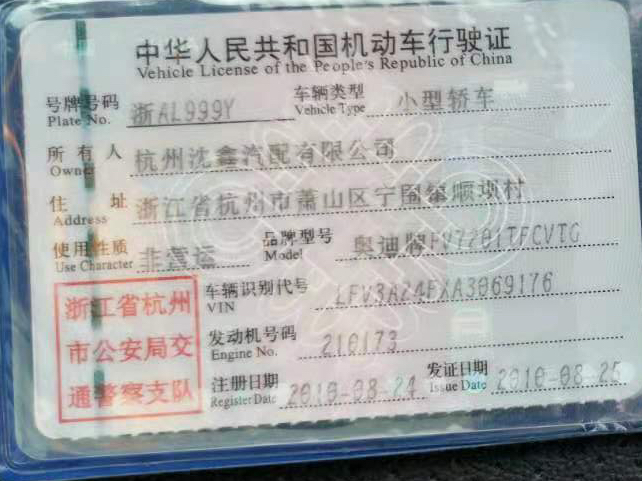 中华人民共和国机动车行驶证
Vehicle License of the People's Republic of China
号牌号码 浙AL999Y 车辆类型 小型轿车
Plate No. Vehicle Type
所有人 杭州沈鑫汽配有限公司
Owner
住址 浙江省杭州市萧山区宁围镇顺坝村
Address
使用性质 非营运 品牌型号 奥迪牌FV7201TFCVTG
Use Character Model
浙江省杭州
市公安局交
通警察支队
车辆识别代号 LFV3A24FXA3069176
VIN
发动机号码 210173
Engine No.
注册日期 2010-08-24 发证日期 2010-08-25
Register Date Issue Date